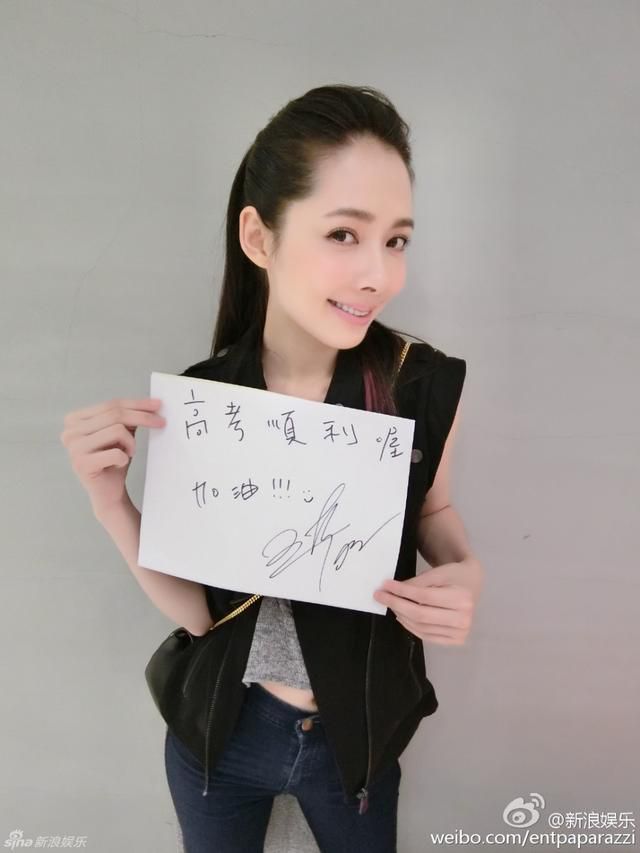 高考順利喔
加油!!!
@新浪娱乐
weibo.com/entpaparazzi
sina新浪娱乐